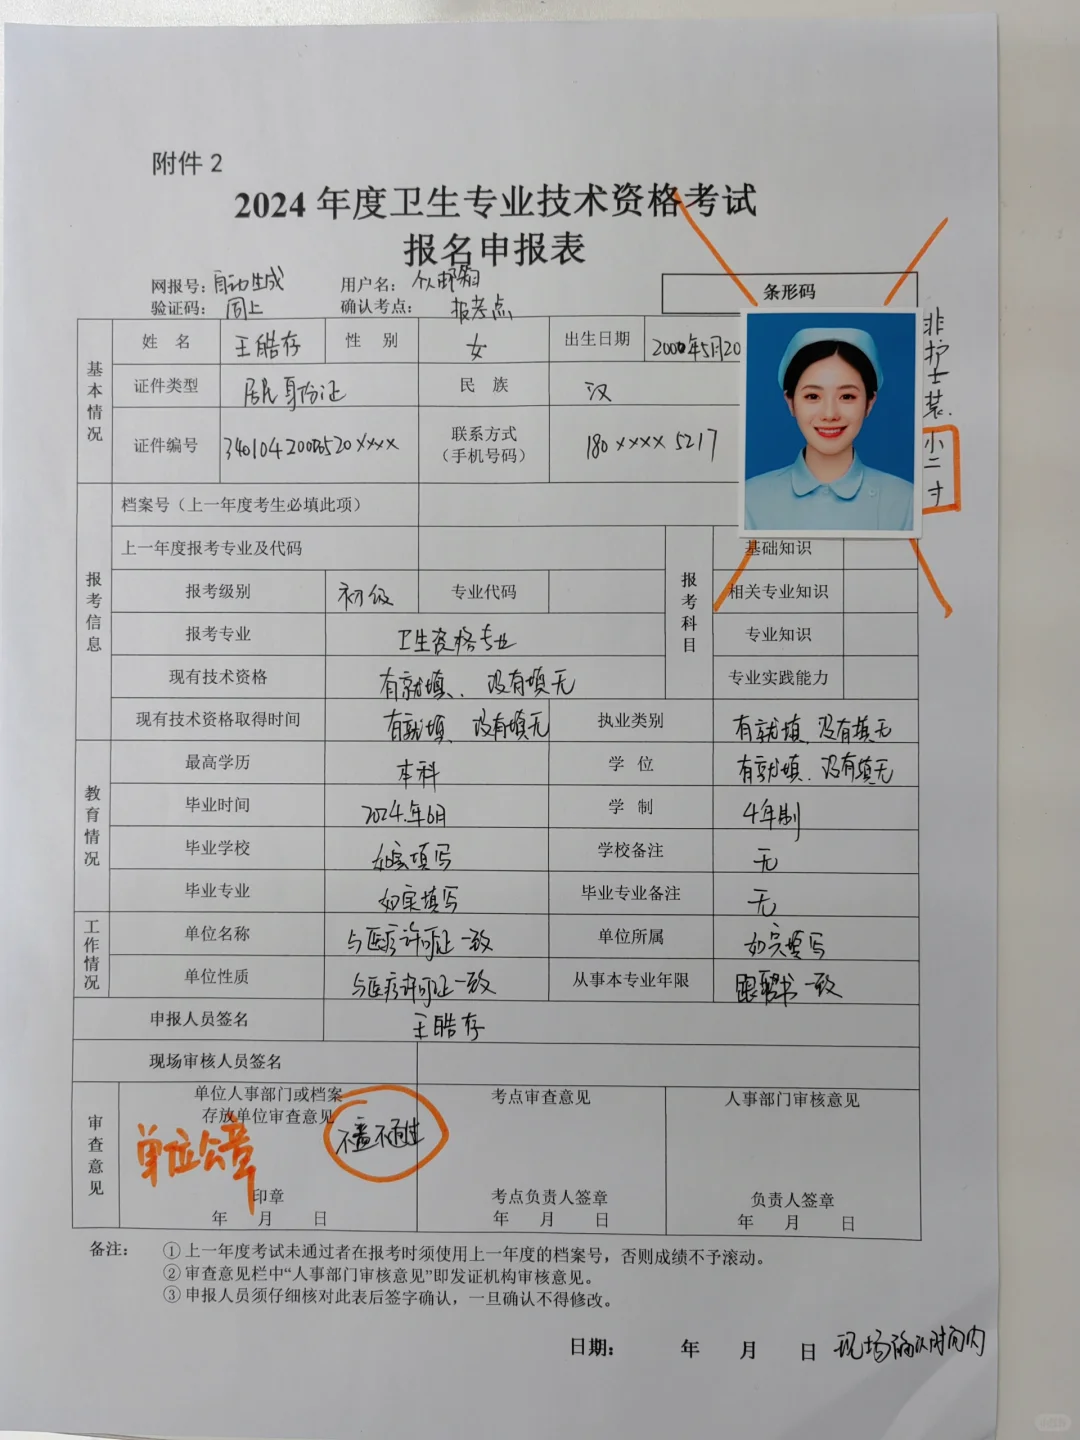 附件 2
2024 年度卫生专业技术资格考试
报名申报表
网报号：自动生成 用户名：个人邮箱
验证码：同上 确认考点：报考点
条形码
非护士装.小二寸
基本情况
姓 名 王皓存 性 别 女 出生日期 2000年5月20
证件类型 居民身份证 民 族 汉
证件编号 340104 20000520×××× 联系方式（手机号码） 180××××5217
报考信息
档案号（上一年度考生必填此项）
上一年度报考专业及代码 报考科目 基础知识
报考级别 初级 专业代码 相关专业知识
报考专业 卫生资格专业 专业知识
现有技术资格 有就填、没有填无 专业实践能力
现有技术资格取得时间 有就填、没有填无 执业类别 有就填、没有填无
教育情况
最高学历 本科 学 位 有就填、没有填无
毕业时间 2024.年6月 学 制 4年制
毕业学校 如实填写 学校备注 无
毕业专业 如实填写 毕业专业备注 无
工作情况
单位名称 与医疗许可证一致 单位所属 如实填写
单位性质 与医疗许可证一致 从事本专业年限 跟聘书一致
申报人员签名 王皓存
现场审核人员签名
审查意见
单位人事部门或档案存放单位审查意见 考点审查意见 人事部门审核意见
单位公章 不盖不通过
印章 考点负责人签章 负责人签章
年 月 日 年 月 日 年 月 日
备注： ①上一年度考试未通过者在报考时须使用上一年度的档案号，否则成绩不予滚动。
②审查意见栏中“人事部门审核意见”即发证机构审核意见。
③申报人员须仔细核对此表后签字确认，一旦确认不得修改。
日期： 年 月 日 现场确认时间内